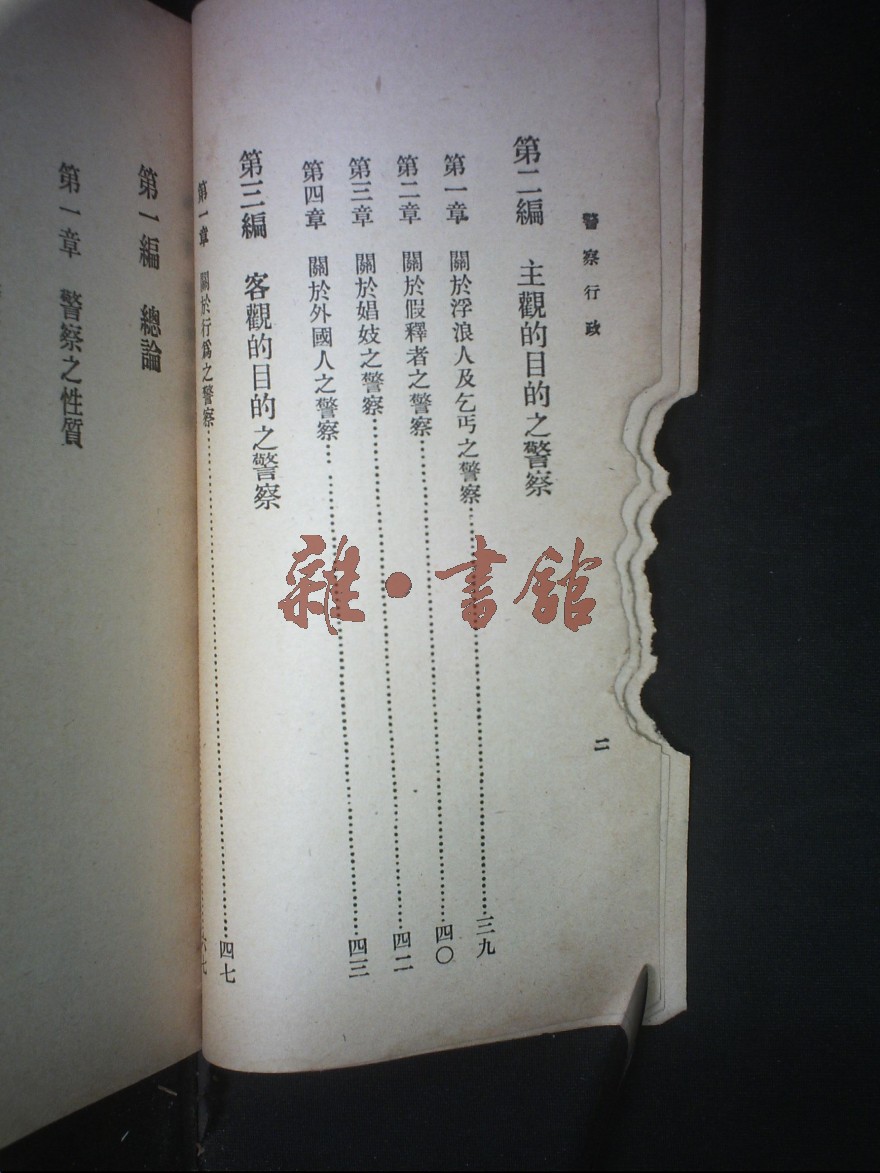 警察行政
二
第二編 主觀的目的之警察
第一章 關於浮浪人及乞丐之警察……三九
第二章 關於假釋者之警察……四〇
第三章 關於娼妓之警察……四二
第四章 關於外國人之警察……四三
第三編 客觀的目的之警察
第一章 關於行爲之警察……四七
六七
第一編 總論
第一章 警察之性質
雜·書館